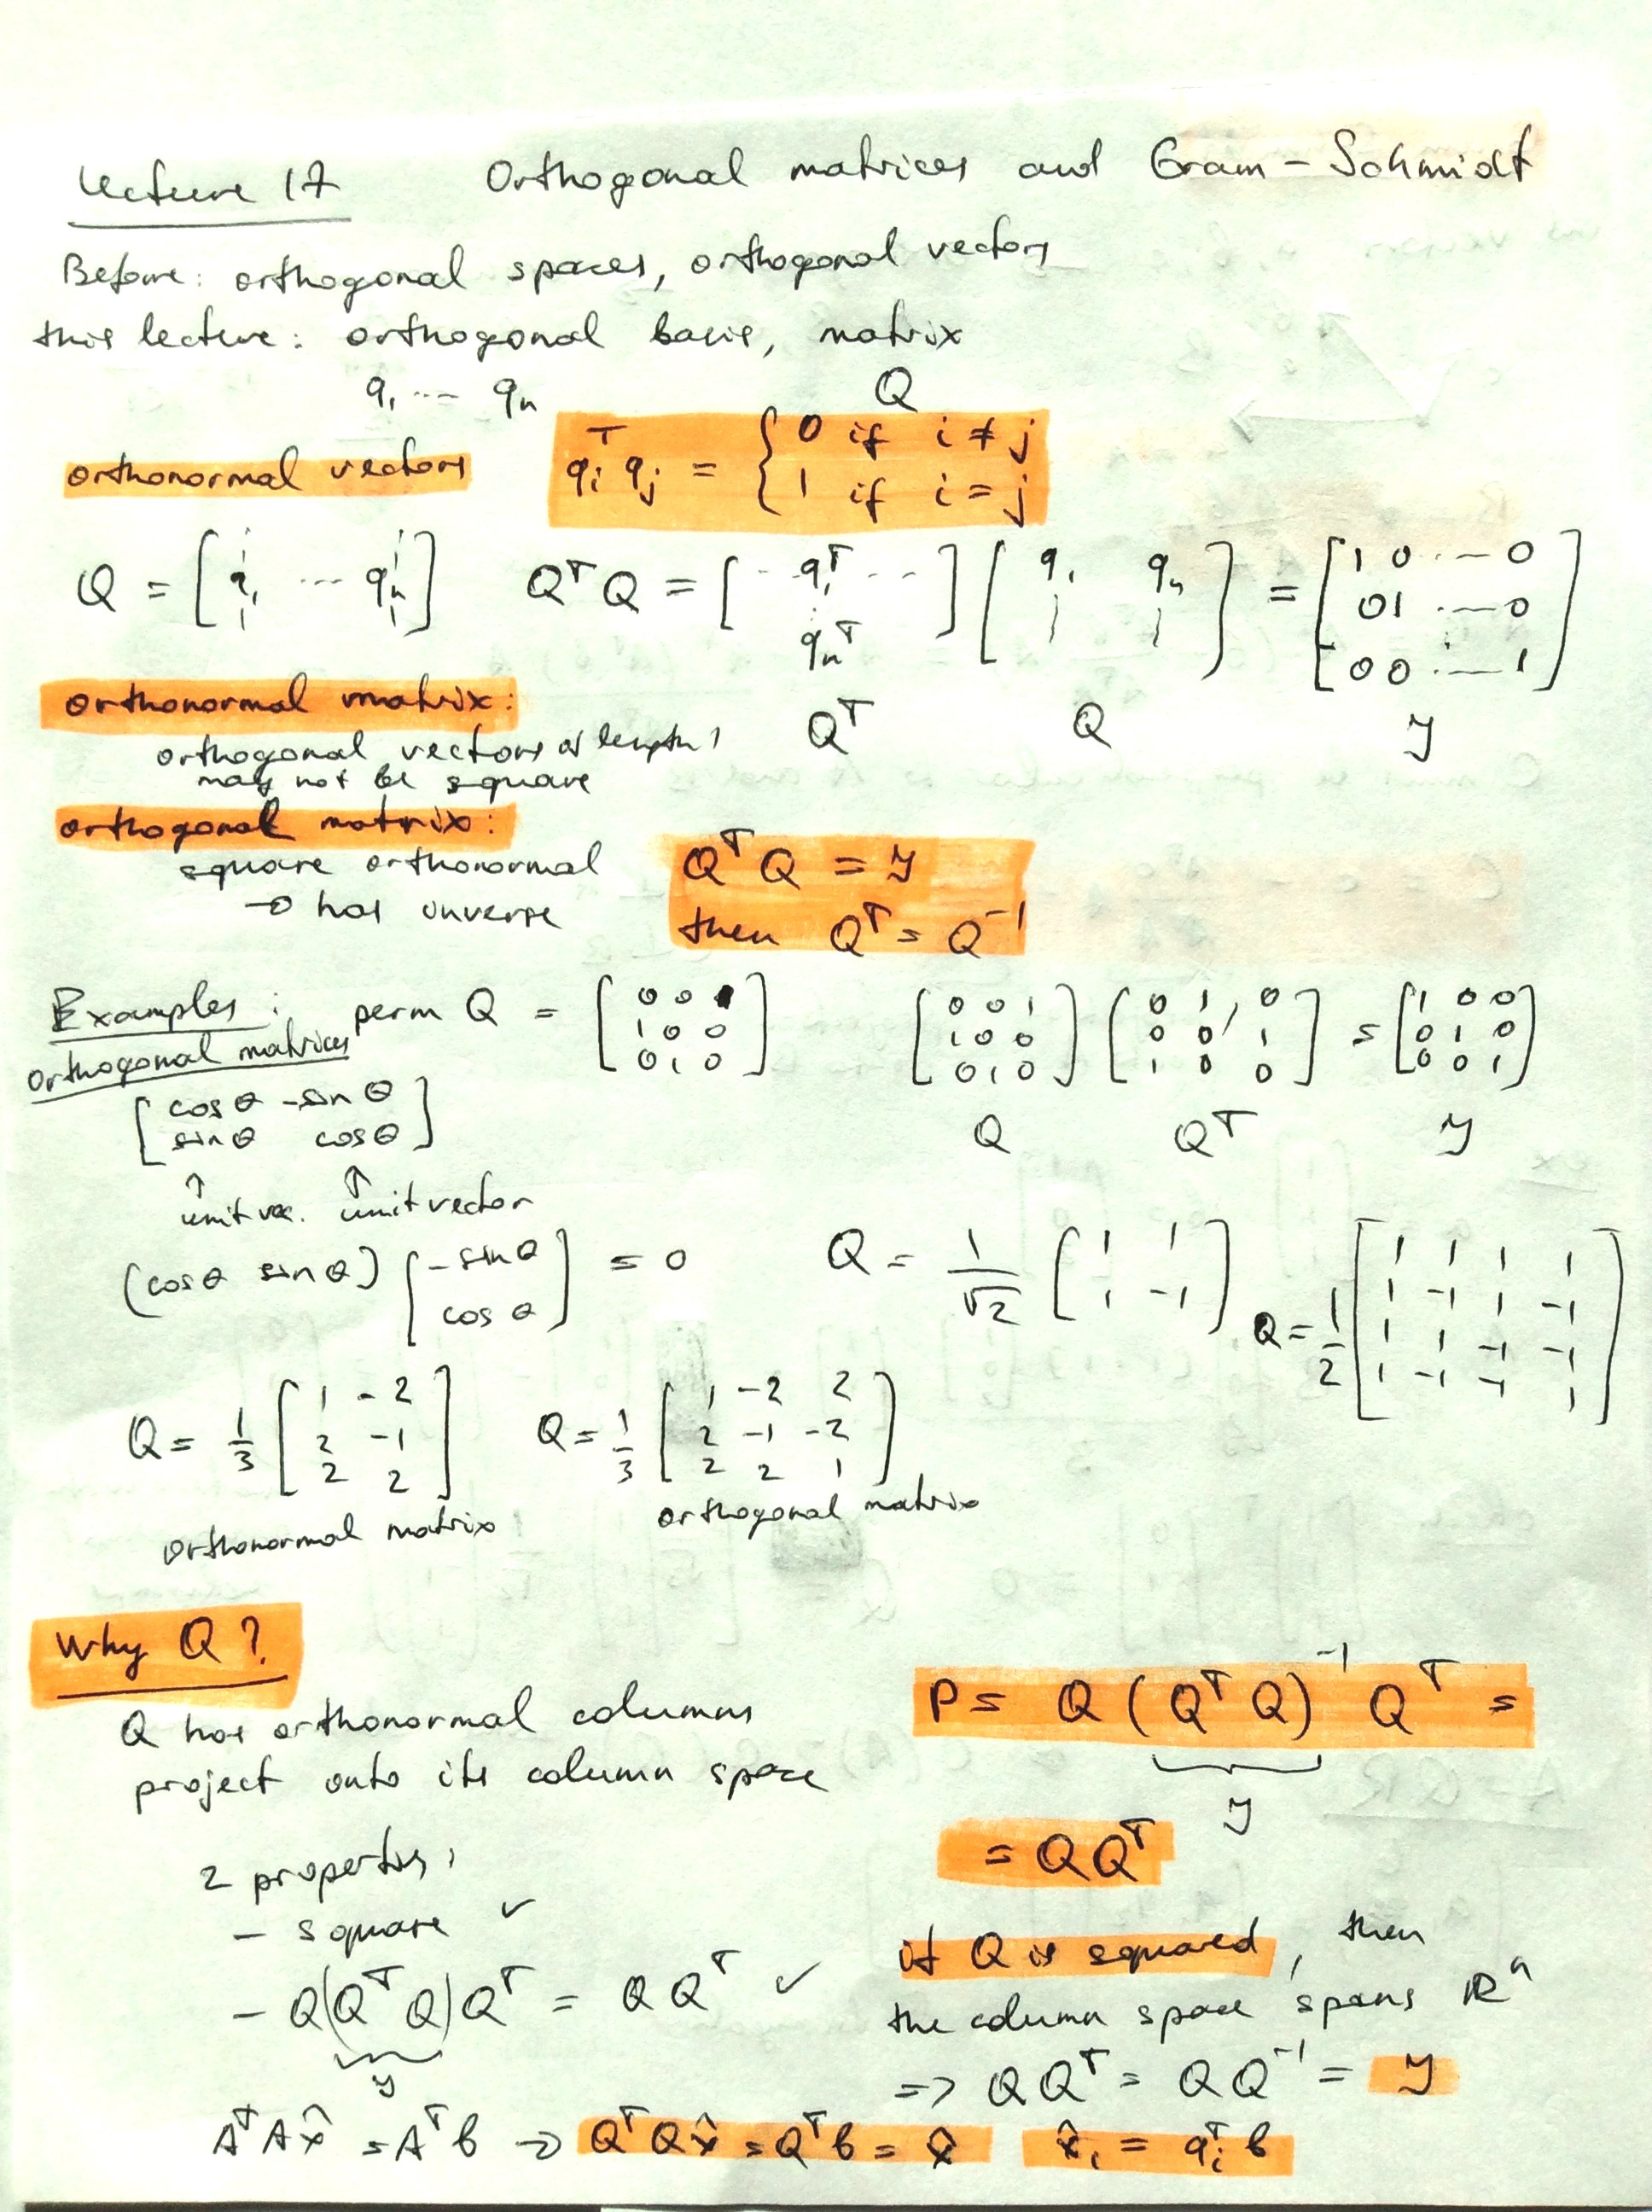 Lecture 17 Orthogonal matrices and Gram-Schmidt
Before: orthogonal spaces, orthogonal vectors
this lecture: orthogonal basis, matrix
q₁ ... qₙ Q
orthonormal vectors qᵢᵀ qⱼ = { 0 if i ≠ j
1 if i = j
Q = [ q₁ ... qₙ ] QᵀQ = [ -- q₁ᵀ -- ⋮ qₙᵀ ] [ q₁ qₙ ] = [ 1 0 ... 0
0 1 ... 0
0 0 ... 1 ]
orthonormal matrix: Qᵀ Q I
orthogonal vectors of length 1
may not be square
orthogonal matrix:
square orthonormal QᵀQ = I
→ has inverse then Qᵀ = Q⁻¹
Examples: perm Q = [ 0 0 1 [ 0 0 1 [ 0 1 0 = [ 1 0 0
orthogonal matrices 1 0 0 1 0 0 0 0 1 0 1 0
0 1 0 ] 0 1 0 ] 1 0 0 ] 0 0 1 ]
[ cos θ -sin θ
sin θ cos θ ] Q Qᵀ I
↑ ↑
unit vec. unit vector
(cos θ sin θ) [ -sin θ
cos θ ] = 0 Q = 1/√2 [ 1 1
1 -1 ] Q = 1/2 [ 1 1 1 1
1 -1 1 -1
1 1 -1 -1
1 -1 -1 1 ]
Q = 1/3 [ 1 -2
2 -1
2 2 ] Q = 1/3 [ 1 -2 2
2 -1 -2
2 2 1 ]
orthonormal matrix orthogonal matrix
Why Q?
Q has orthonormal columns
project onto its column space
P = Q (QᵀQ)⁻¹ Qᵀ =
I
= QQᵀ
2 properties:
- square ✓
- Q(QᵀQ)Qᵀ = QQᵀ ✓
I
if Q is squared, then
the column space spans ℝⁿ
=> QQᵀ = QQ⁻¹ = I
AᵀAx̂ = Aᵀb → QᵀQx̂ = Qᵀb = x̂ x̂ᵢ = qᵢᵀb